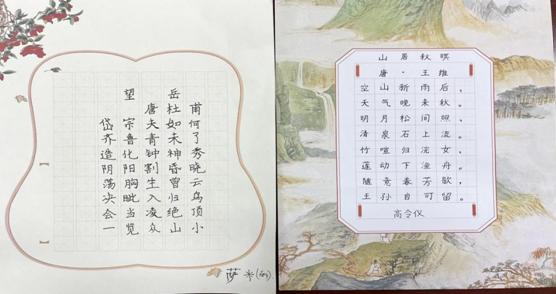 望岳
唐杜甫
岱宗夫如何
齐鲁青未了
造化钟神秀
阴阳割昏晓
荡胸生曾云
决眦入归鸟
会当凌绝顶
一览众山小
萨
山居秋暝
唐·王维
空山新雨后，
天气晚来秋。
明月松间照，
清泉石上流。
竹喧归浣女，
莲动下渔舟。
随意春芳歇，
王孙自可留。
高令仪